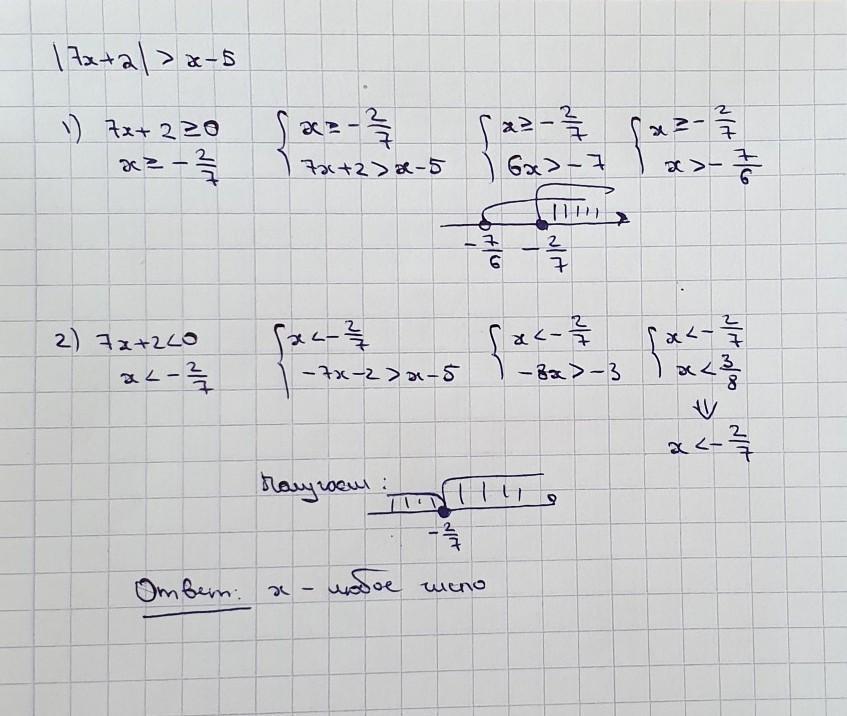 |7x+2| > x-5
1) 7x+2≥0 { x≥-2/7 { x≥-2/7 { x≥-2/7
x≥-2/7 7x+2>x-5 6x>-7 x>-7/6
-7/6 -2/7
2) 7x+2<0 { x<-2/7 { x<-2/7 { x<-2/7
x<-2/7 -7x-2>x-5 -8x>-3 x<3/8
⇓
x<-2/7
Получаем:
-2/7
Ответ: x - любое число